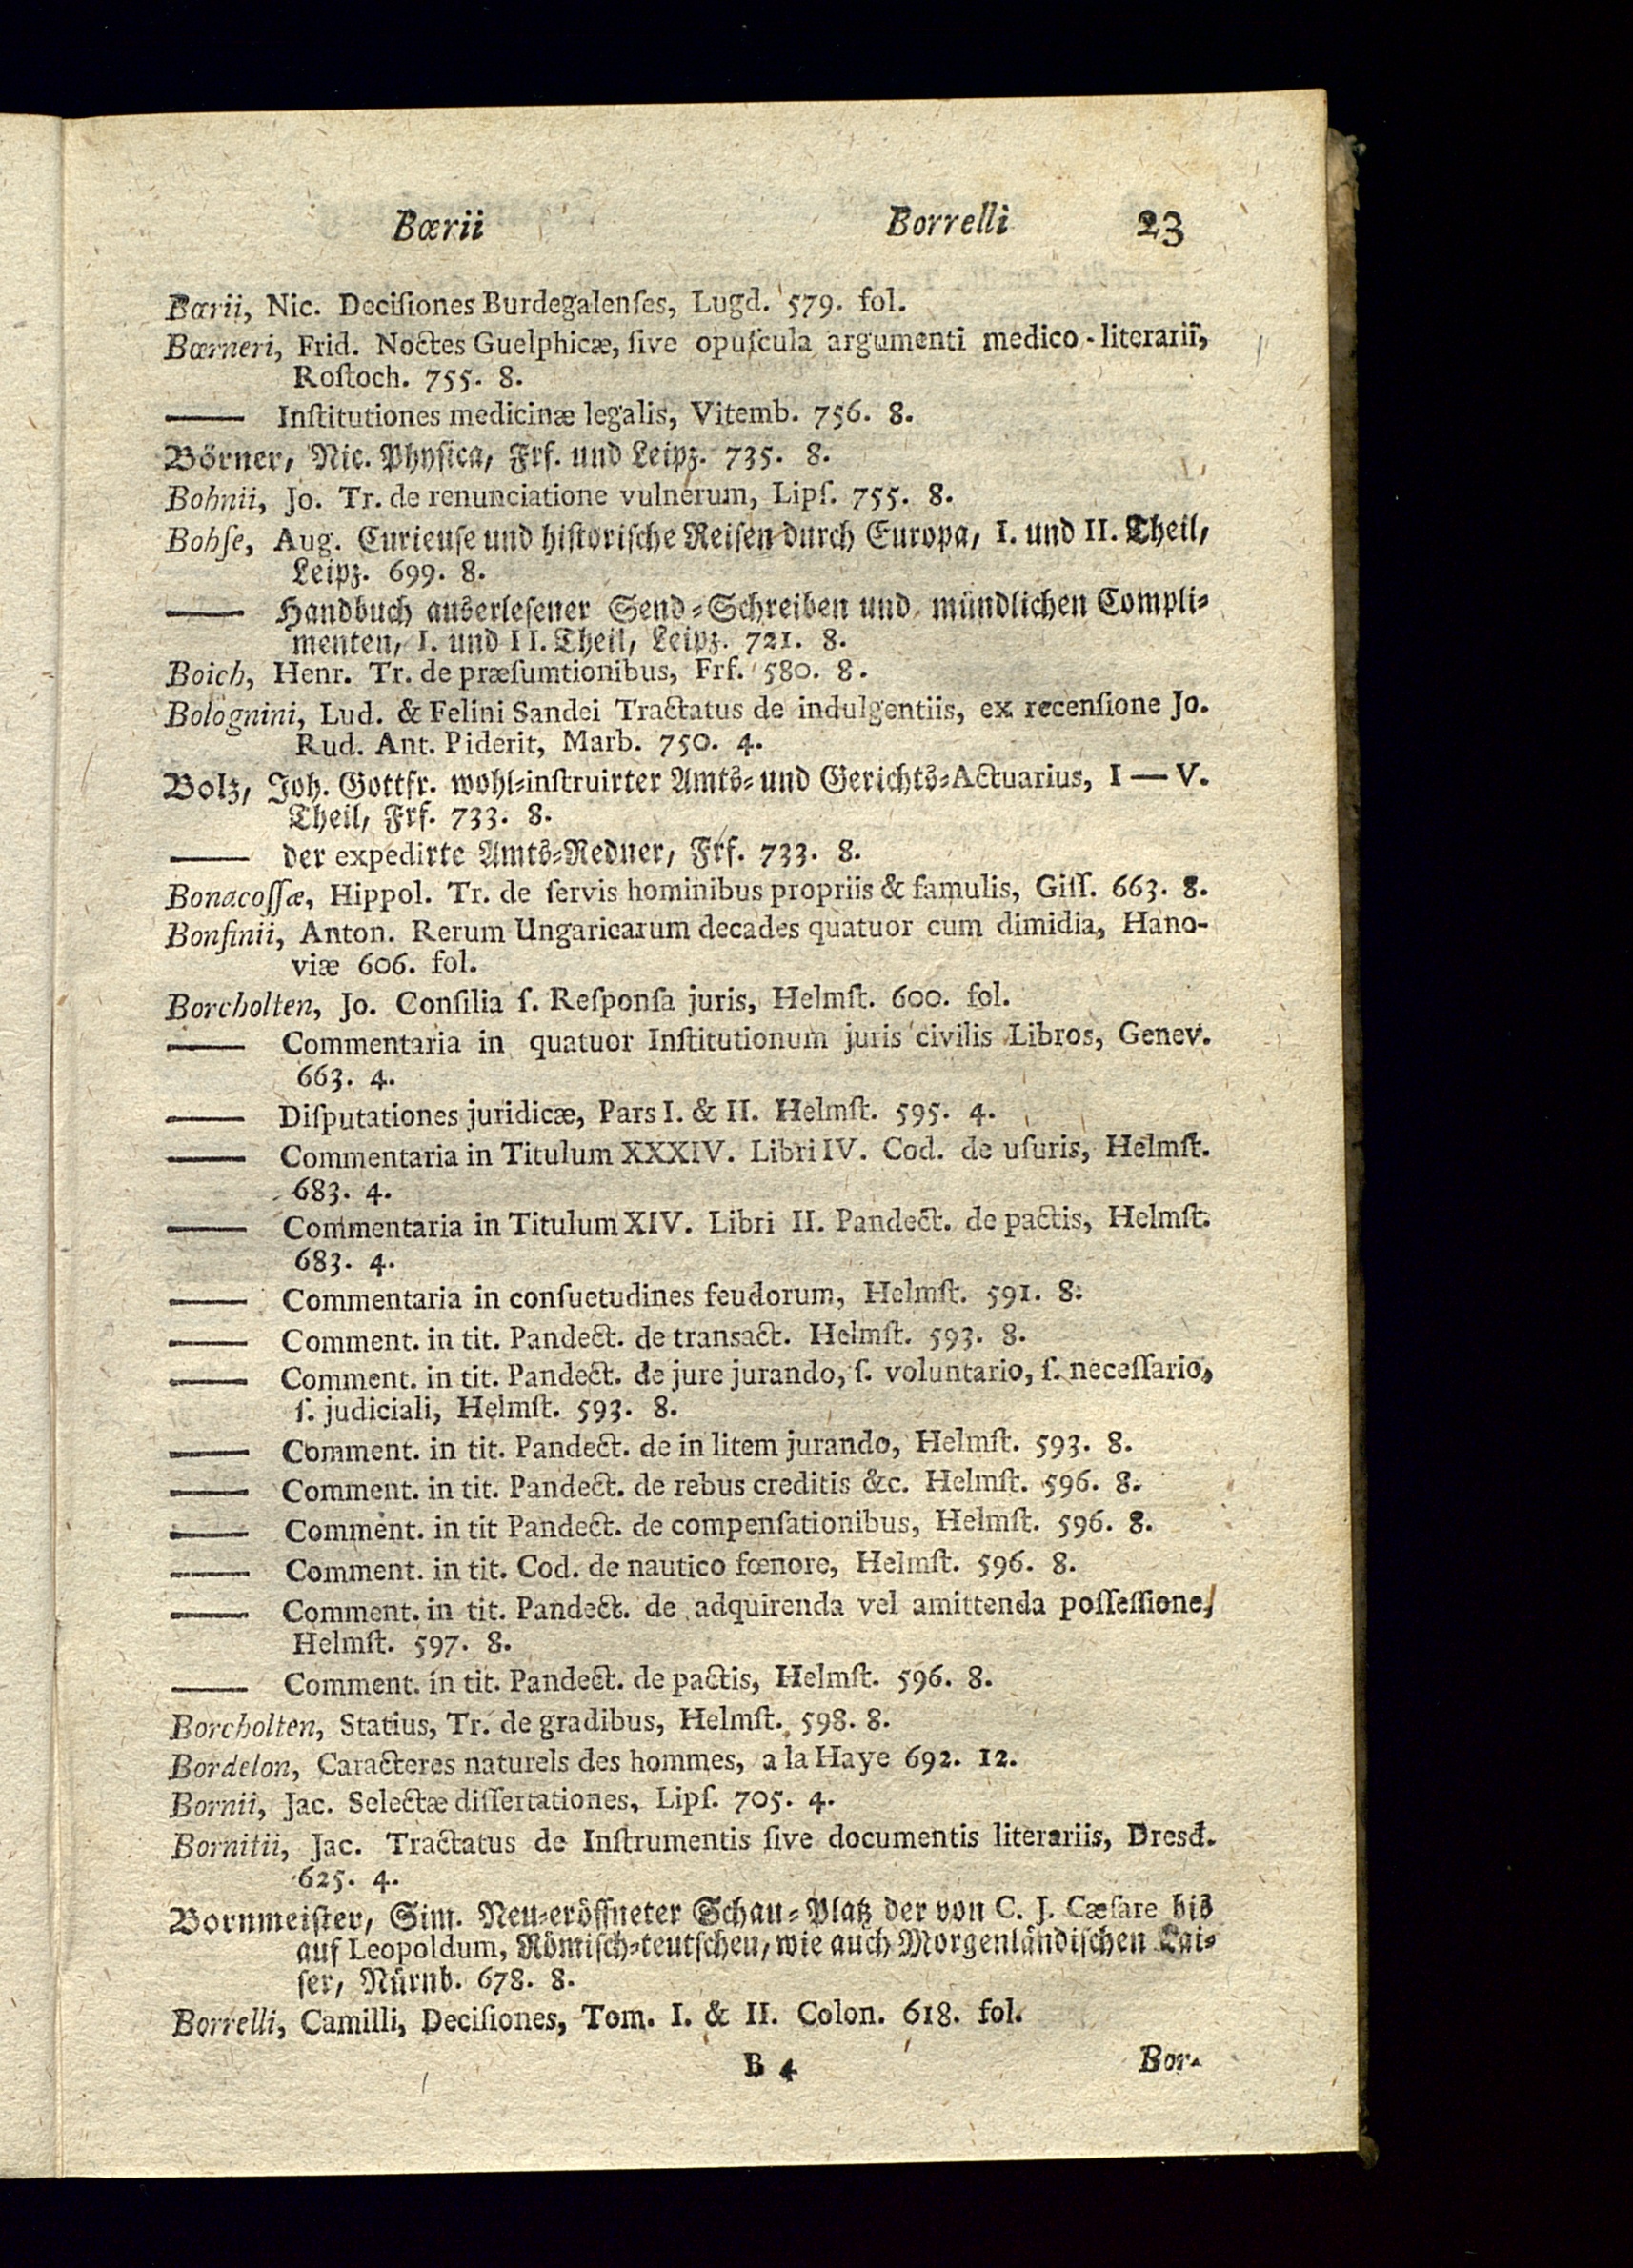 Bœrii Borrelli 23
Bœrii, Nic. Deciſiones Burdegalenſes, Lugd. 579. fol.
Bœrneri, Frid. Noctes Guelphicæ, ſive opuſcula argumenti medico-literarii,
Roſtoch. 755. 8.
—— Inſtitutiones medicinæ legalis, Vitemb. 756. 8.
Börner, Nic. Phyſica, Frf. und Leipz. 735. 8.
Bohnii, Jo. Tr. de renunciatione vulnerum, Lipſ. 755. 8.
Bohſe, Aug. Curieuſe und hiſtoriſche Reiſen durch Europa, I. und II. Theil,
Leipz. 699. 8.
—— Handbuch auserleſener Send-Schreiben und mündlichen Compli-
menten, I. und II. Theil, Leipz. 721. 8.
Boich, Henr. Tr. de præſumtionibus, Frf. 580. 8.
Bolognini, Lud. & Felini Sandei Tractatus de indulgentiis, ex recenſione Jo.
Rud. Ant. Piderit, Marb. 750. 4.
Bolz, Joh. Gottfr. wohl-inſtruirter Amts- und Gerichts-Actuarius, I — V.
Theil, Frf. 733. 8.
—— der expedirte Amts-Redner, Frf. 733. 8.
Bonacoſſæ, Hippol. Tr. de ſervis hominibus propriis & famulis, Giſſ. 663. 8.
Bonfinii, Anton. Rerum Ungaricarum decades quatuor cum dimidia, Hano-
viæ 606. fol.
Borcholten, Jo. Conſilia ſ. Reſponſa juris, Helmſt. 600. fol.
—— Commentaria in quatuor Inſtitutionum juris civilis Libros, Genev.
663. 4.
—— Diſputationes juridicæ, Pars I. & II. Helmſt. 595. 4.
—— Commentaria in Titulum XXXIV. Libri IV. Cod. de uſuris, Helmſt.
683. 4.
—— Commentaria in Titulum XIV. Libri II. Pandect. de pactis, Helmſt.
683. 4.
—— Commentaria in conſuetudines feudorum, Helmſt. 591. 8.
—— Comment. in tit. Pandect. de transact. Helmſt. 593. 8.
—— Comment. in tit. Pandect. de jure jurando, ſ. voluntario, ſ. neceſſario,
ſ. judiciali, Helmſt. 593. 8.
—— Comment. in tit. Pandect. de in litem jurando, Helmſt. 593. 8.
—— Comment. in tit. Pandect. de rebus creditis &c. Helmſt. 596. 8.
—— Comment. in tit Pandect. de compenſationibus, Helmſt. 596. 8.
—— Comment. in tit. Cod. de nautico fœnore, Helmſt. 596. 8.
—— Comment. in tit. Pandect. de adquirenda vel amittenda poſſeſſione,
Helmſt. 597. 8.
—— Comment. in tit. Pandect. de pactis, Helmſt. 596. 8.
Borcholten, Statius, Tr. de gradibus, Helmſt. 598. 8.
Bordelon, Caracteres naturels des hommes, a la Haye 692. 12.
Bornii, Jac. Selectæ diſſertationes, Lipſ. 705. 4.
Bornitii, Jac. Tractatus de Inſtrumentis ſive documentis literariis, Dresd.
625. 4.
Bornmeiſter, Sim. Neu-eröffneter Schau-Platz der von C. J. Cæſare bis
auf Leopoldum, Römiſch-teutſchen, wie auch Morgenländiſchen Kai-
ſer, Nürnb. 678. 8.
Borrelli, Camilli, Deciſiones, Tom. I. & II. Colon. 618. fol.
B 4 Bor-